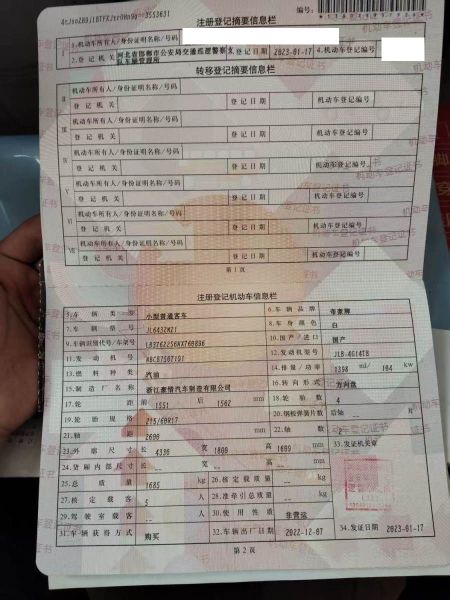 注册登记摘要信息栏
编号:
1.机动车所有人/身份证明名称/号码
2.登记机关 河北省邯郸市公安局交通巡逻警察支队车辆管理所 登记日期 2023-01-17 4.机动车登记编号
转移登记摘要信息栏
Ⅱ 机动车所有人/身份证明名称/号码
登记机关 登记日期 机动车登记编号
Ⅲ 机动车所有人/身份证明名称/号码
登记机关 登记日期 机动车登记编号
Ⅳ 机动车所有人/身份证明名称/号码
登记机关 登记日期 机动车登记编号
Ⅴ 机动车所有人/身份证明名称/号码
登记机关 登记日期 机动车登记编号
Ⅵ 机动车所有人/身份证明名称/号码
登记机关 登记日期 机动车登记编号
Ⅶ 机动车所有人/身份证明名称/号码
登记机关 登记日期 机动车登记编号
第1页
注册登记机动车信息栏
5.车辆类型 小型普通客车 6.车辆品牌 帝豪牌
7.车辆型号 8.车身颜色 白
9.车辆识别代号/车架号 10.国产/进口 国产
11.发动机号 12.发动机型号 JLB-4G14TB
13.燃料种类 汽油 14.排量/功率 1398 ml/ 104 kw
15.制造厂名称 浙江豪情汽车制造有限公司 16.转向形式 方向盘
17.轮距 前 1551 后 1562 mm 18.轮胎数 4
19.轮胎规格 215/60R17 20.钢板弹簧片数 后轴 -- 片
21.轴距 2600 mm 22.轴数 2
23.外廓尺寸 长 4330 宽 1800 高 1609 mm 33.发证机关章
24.货厢内部尺寸 长 -- 宽 -- 高 -- mm
25.总质量 1685 kg 26.核定载质量 -- kg
27.核定载客 5 人 28.准牵引总质量 -- kg
29.驾驶室载客 -- 人 30.使用性质 非营运
31.车辆获得方式 购买 32.车辆出厂日期 2022-12-07 34.发证日期 2023-01-17
第2页